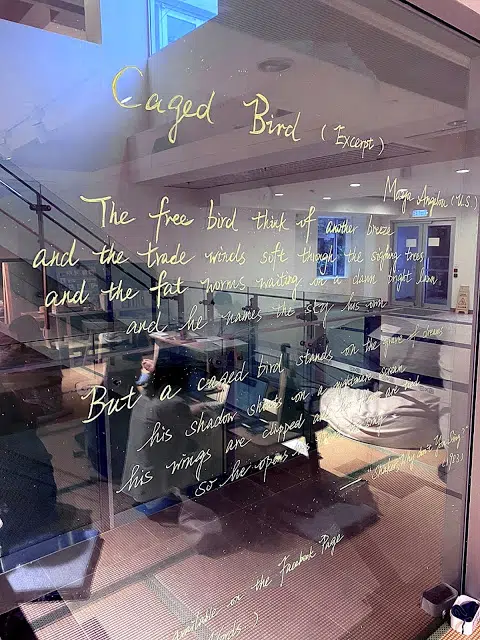 Caged Bird (Excerpt)
Maya Angelou (U.S.)
The free bird think of another breeze
and the trade winds soft through the sighing trees
and the fat worms waiting on a dawn bright lawn
and he names the sky his own
But a caged bird stands on the grave of dreams
his shadow shouts on a nightmare scream
his wings are clipped and his feet are tied
so he opens his throat to sing
— "Shaker, Why Don't You Sing?"
(1983)
available on the Facebook Page